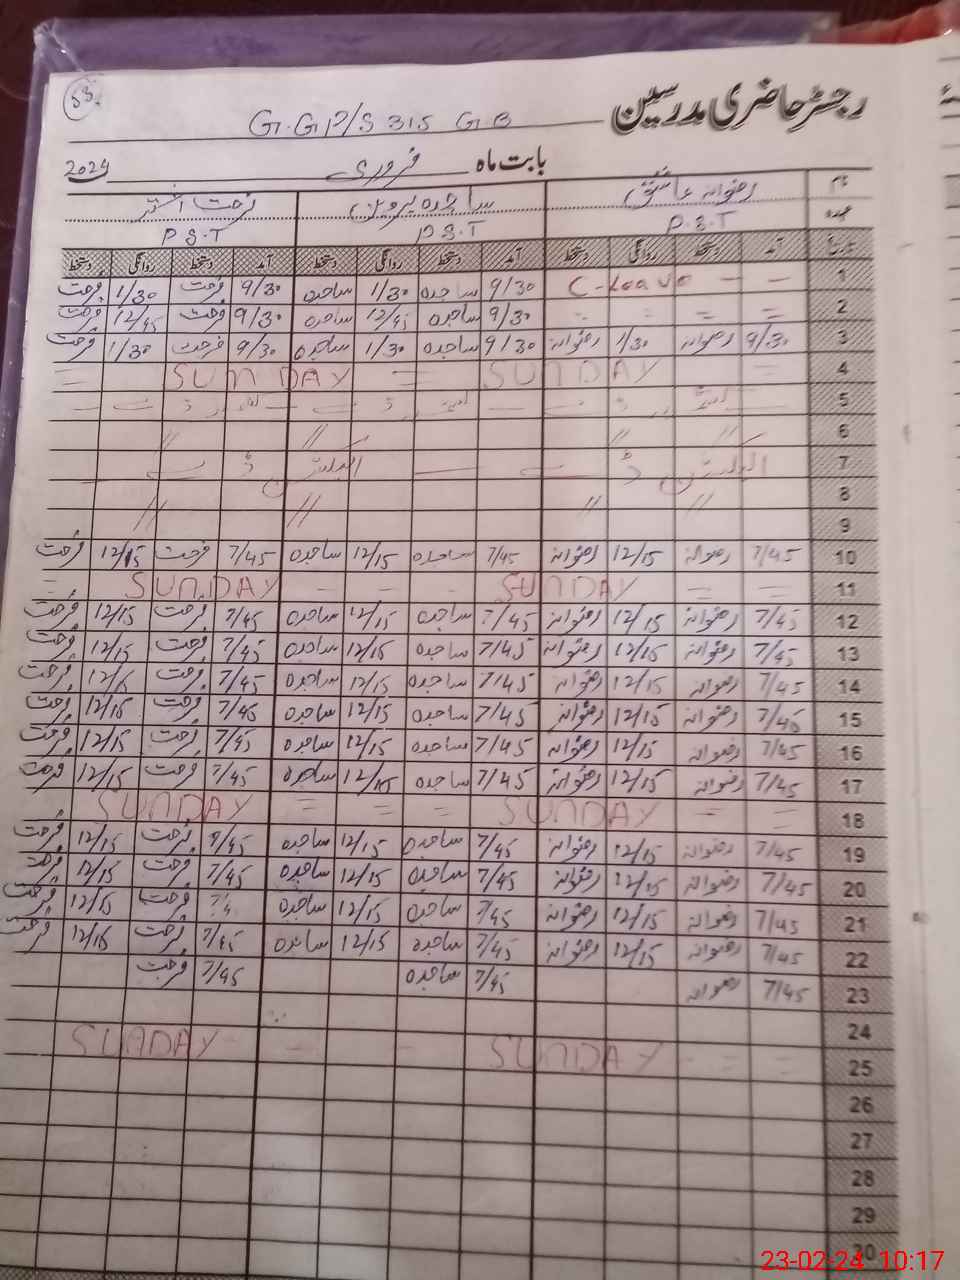 53
رجسٹر حاضری مدرسین G.G.P/S 315 G B
بابت ماہ فروری 2024
نام رضوانہ عاشق ساجدہ پروین فرحت اختر
عہدہ P.S.T P.S.T P.S.T
تاریخ آمد دستخط روانگی دستخط آمد دستخط روانگی دستخط آمد دستخط روانگی دستخط
1 - - C-Leave 9/30 ساجدہ 1/30 ساجدہ 9/30 فرحت 1/30 فرحت
2 = = = = 9/30 ساجدہ 12/45 ساجدہ 9/30 فرحت 12/45 فرحت
3 9/30 رضوانہ 1/30 رضوانہ 9/30 ساجدہ 1/30 ساجدہ 9/30 فرحت 1/30 فرحت
4 = SUNDAY = SUNDAY =
5
6 // // // //
7 الیکشن ڈے الیکشن ڈے
8 // // // //
9
10 7/45 رضوانہ 12/15 رضوانہ 7/45 ساجدہ 12/15 ساجدہ 7/45 فرحت 12/15 فرحت
11 = = SUNDAY - - - SUNDAY =
12 7/45 رضوانہ 12/15 رضوانہ 7/45 ساجدہ 12/15 ساجدہ 7/45 فرحت 12/15 فرحت
13 7/45 رضوانہ 12/15 رضوانہ 7/45 ساجدہ 12/15 ساجدہ 7/45 فرحت 12/15 فرحت
14 7/45 رضوانہ 12/15 رضوانہ 7/45 ساجدہ 12/15 ساجدہ 7/45 فرحت 12/15 فرحت
15 7/45 رضوانہ 12/15 رضوانہ 7/45 ساجدہ 12/15 ساجدہ 7/45 فرحت 12/15 فرحت
16 7/45 رضوانہ 12/15 رضوانہ 7/45 ساجدہ 12/15 ساجدہ 7/45 فرحت 12/15 فرحت
17 7/45 رضوانہ 12/15 رضوانہ 7/45 ساجدہ 12/15 ساجدہ 7/45 فرحت 12/15 فرحت
18 = = SUNDAY = = = SUNDAY
19 7/45 رضوانہ 12/15 رضوانہ 7/45 ساجدہ 12/15 ساجدہ 7/45 فرحت 12/15 فرحت
20 7/45 رضوانہ 12/15 رضوانہ 7/45 ساجدہ 12/15 ساجدہ 7/45 فرحت 12/15 فرحت
21 7/45 رضوانہ 12/15 رضوانہ 7/45 ساجدہ 12/15 ساجدہ فرحت 12/15 فرحت
22 7/45 رضوانہ 12/15 رضوانہ 7/45 ساجدہ 12/15 ساجدہ 7/45 فرحت 12/15 فرحت
23 7/45 رضوانہ 7/45 ساجدہ 7/45 فرحت
24
25 = = - SUNDAY - - - SUNDAY
26
27
28
29
30
23-02-24 10:17